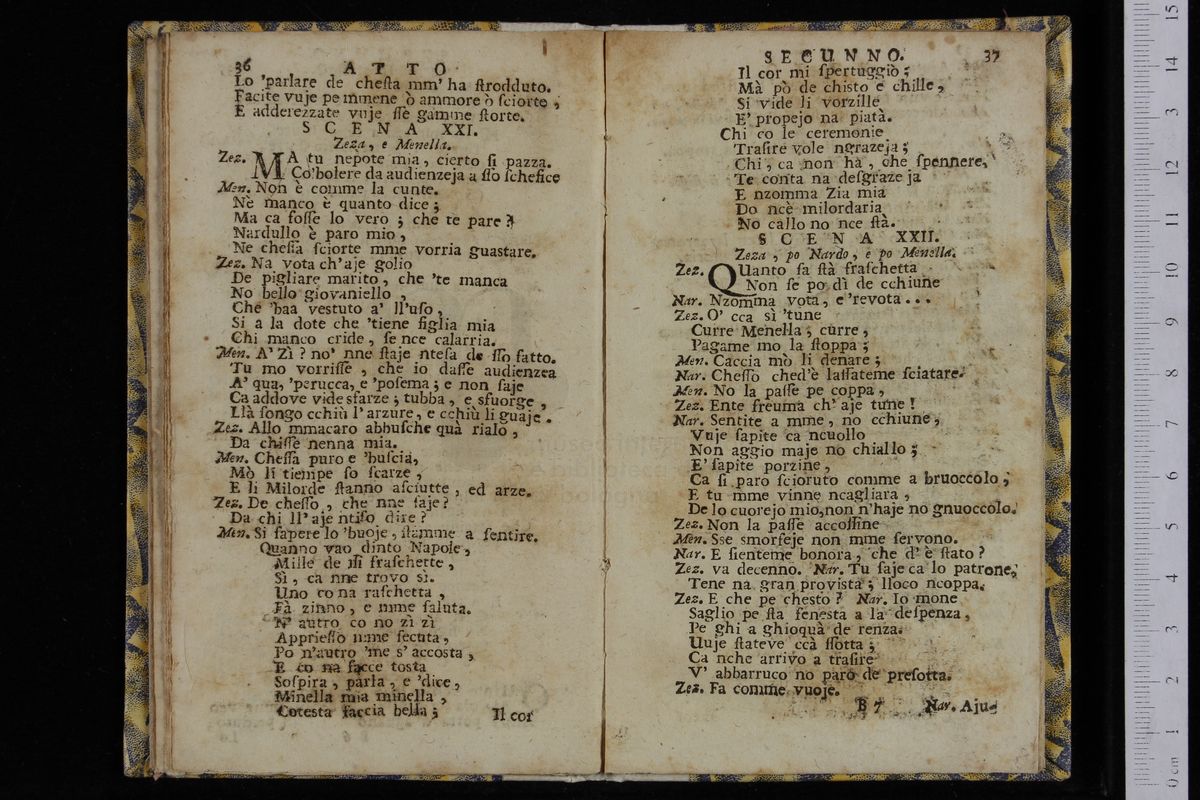 36
ATTO
Lo 'parlare de chesta mm' ha strodduto.
Facite vuje pe mmene ò ammore ò sciorte ,
E adderezzate vuje sse gamme storte.
SCENA XXI.
Zeza, e Menella.
Zez. MA tu nepote mia, cierto si pazza.
Co'bolere da audienzeja a sto schefice
Men. Non è comme la cunte.
Nè manco è quanto dice ;
Ma ca fosse lo vero ; che te pare ?
Nardullo è paro mio ,
Ne chesta sciorte mme vorria guastare.
Zez. Na vota ch'aje golio
De pigliare marito, che 'te manca
No bello giovaniello ,
Che 'baa vestuto a' ll'uso,
Si a la dote che 'tiene figlia mia
Chi manco cride, se nce calarria.
Men. A' Zì ? no' nne staje ntesa de sso fatto.
Tu mo vorrisse , che io dasse audienzea
A' qua, 'perucca, e 'posema ; e non saje
Ca addove vide sfarze ; tubba , e sfuorge ,
Llà songo cchiù l'arzure, e cchiù li guaje.
Zez. Allo mmacaro abbusche quà rialo ,
Da chisse nenna mia.
Men. Chessa puro e 'buscia,
Mò li tiempe so scarze ,
E li Milorde stanno asciutte , ed arze.
Zez. De chesso , che nne saje ?
Da chi ll'aje ntiso dire ?
Men. Si sapere lo 'buoje, stamme a sentire.
Quanno vao dinto Napole,
Mille de ssi fraschette ,
Sì , ca nne trovo sì.
Uno co na raschetta ,
Fà zinno , e mme saluta.
N' autro co no zì zì
Appriesso mme secuta,
Po n'autro 'me s'accosta ,
E co na facce tosta
Sospira , parla , e 'dice,
Minella mia minella ,
Cotesta faccia bella ;
Il cor
SECUNNO.
37
Il cor mi spertuggiò ;
Mà pò de chisto e chille ,
Si vide li vorzille
E' propejo na piatà.
Chi co le ceremonie
Trasire vole ngrazeja ;
Chi , ca non hà , che spennere,
Te conta na desgrazeja
E nzomma Zia mia
Do ncè milordaria
No callo no nce stà.
SCENA XXII.
Zeza , po Nardo, e po Menella.
Zez. QUanto sa stà fraschetta
Non se po dì de cchiune
Nar. Nzomma vota, e 'revota...
Zez. O' cca sì 'tune
Curre Menella, curre,
Pagame mo la stoppa ;
Men. Caccia mò li denare ;
Nar. Chessò ched'è lassateme sciatare.
Men. No la passe pe coppa ,
Zez. Ente freuma ch' aje tune !
Nar. Sentite a mme, no cchiune,
Vuje sapite ca ncuollo
Non aggio maje no chiallo ;
E' sapite porzine,
Ca si paro scioruto comme a bruoccolo ;
E tu mme vinne ncagliara ,
De lo cuorejo mio,non n'haje no gnuoccolo.
Zez. Non la passe accossine
Men. Sse smorfeje non mme servono.
Nar. E sienteme bonora, che d' è stato ?
Zez. va decenno. Nar. Tu saje ca lo patrone,
Tene na gran provista ; lloco ncoppa.
Zez. E che pe chesto ? Nar. Io mone
Saglio pe sta fenesta a la despenza,
Pe ghi a ghioquà de renza.
Uuje stateve ccà ssotta ;
Ca nche arrivo a trasire
V' abbarruco no paro de presotta.
Zez. Fa comme vuoje.
B 7
Nar. Aju-